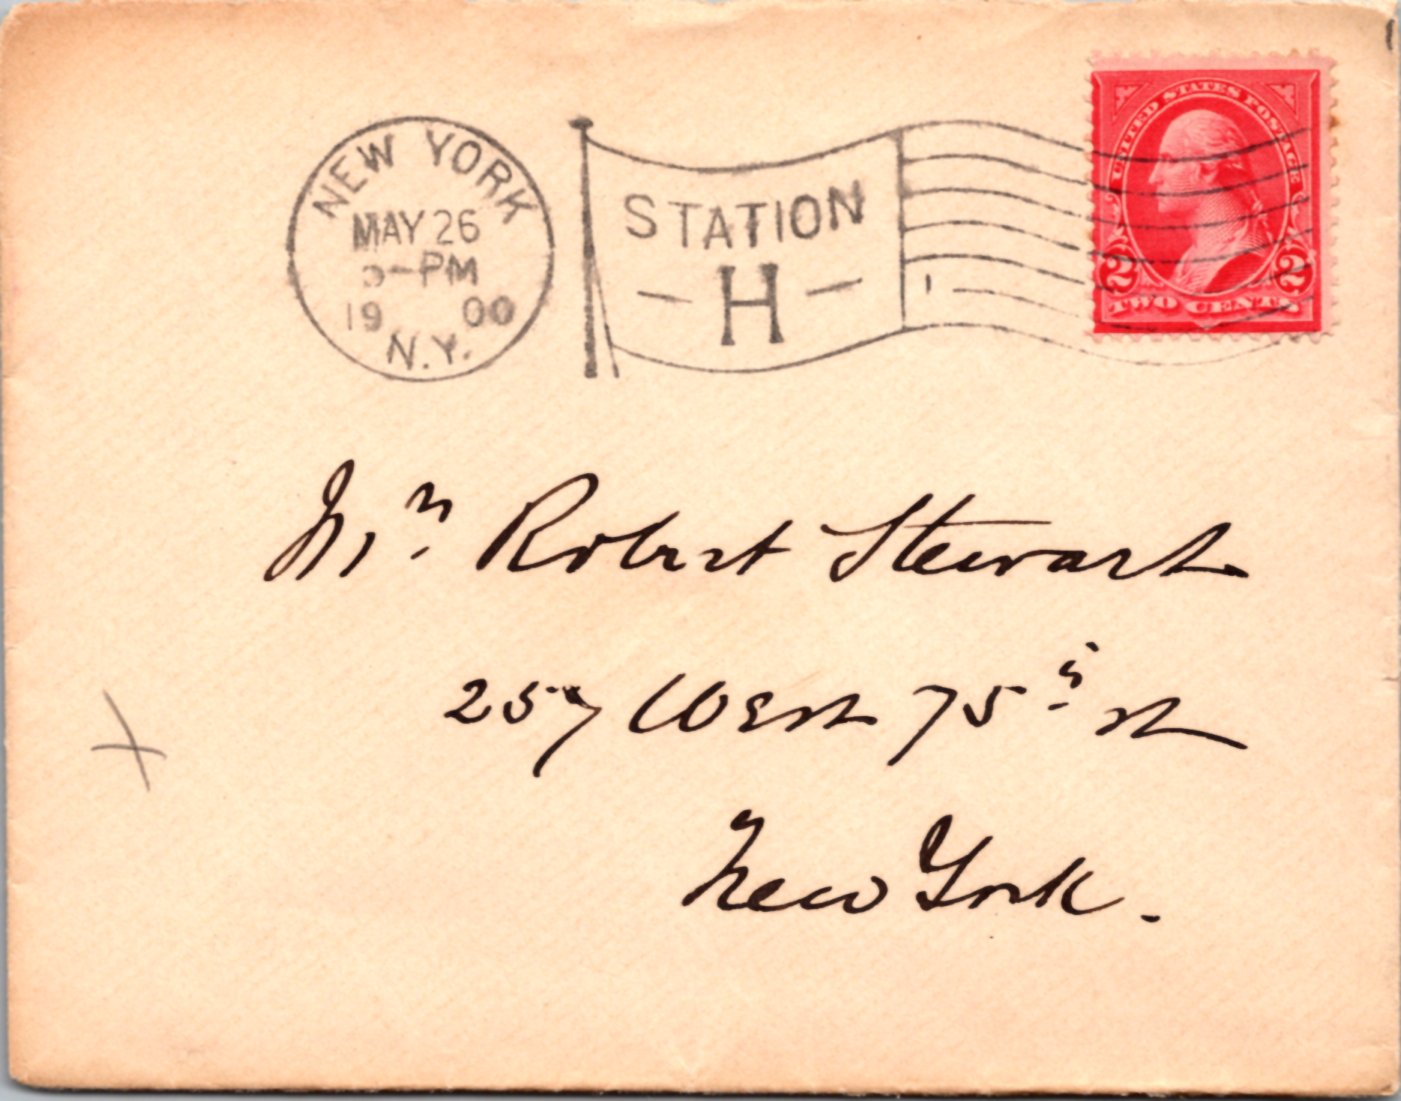 NEW YORK
MAY 26
PM
1900
N.Y.
STATION
- H -
UNITED STATES POSTAGE
2 2
TWO CENTS
Mr. Robert Stewart
257 West 75 St
New York.